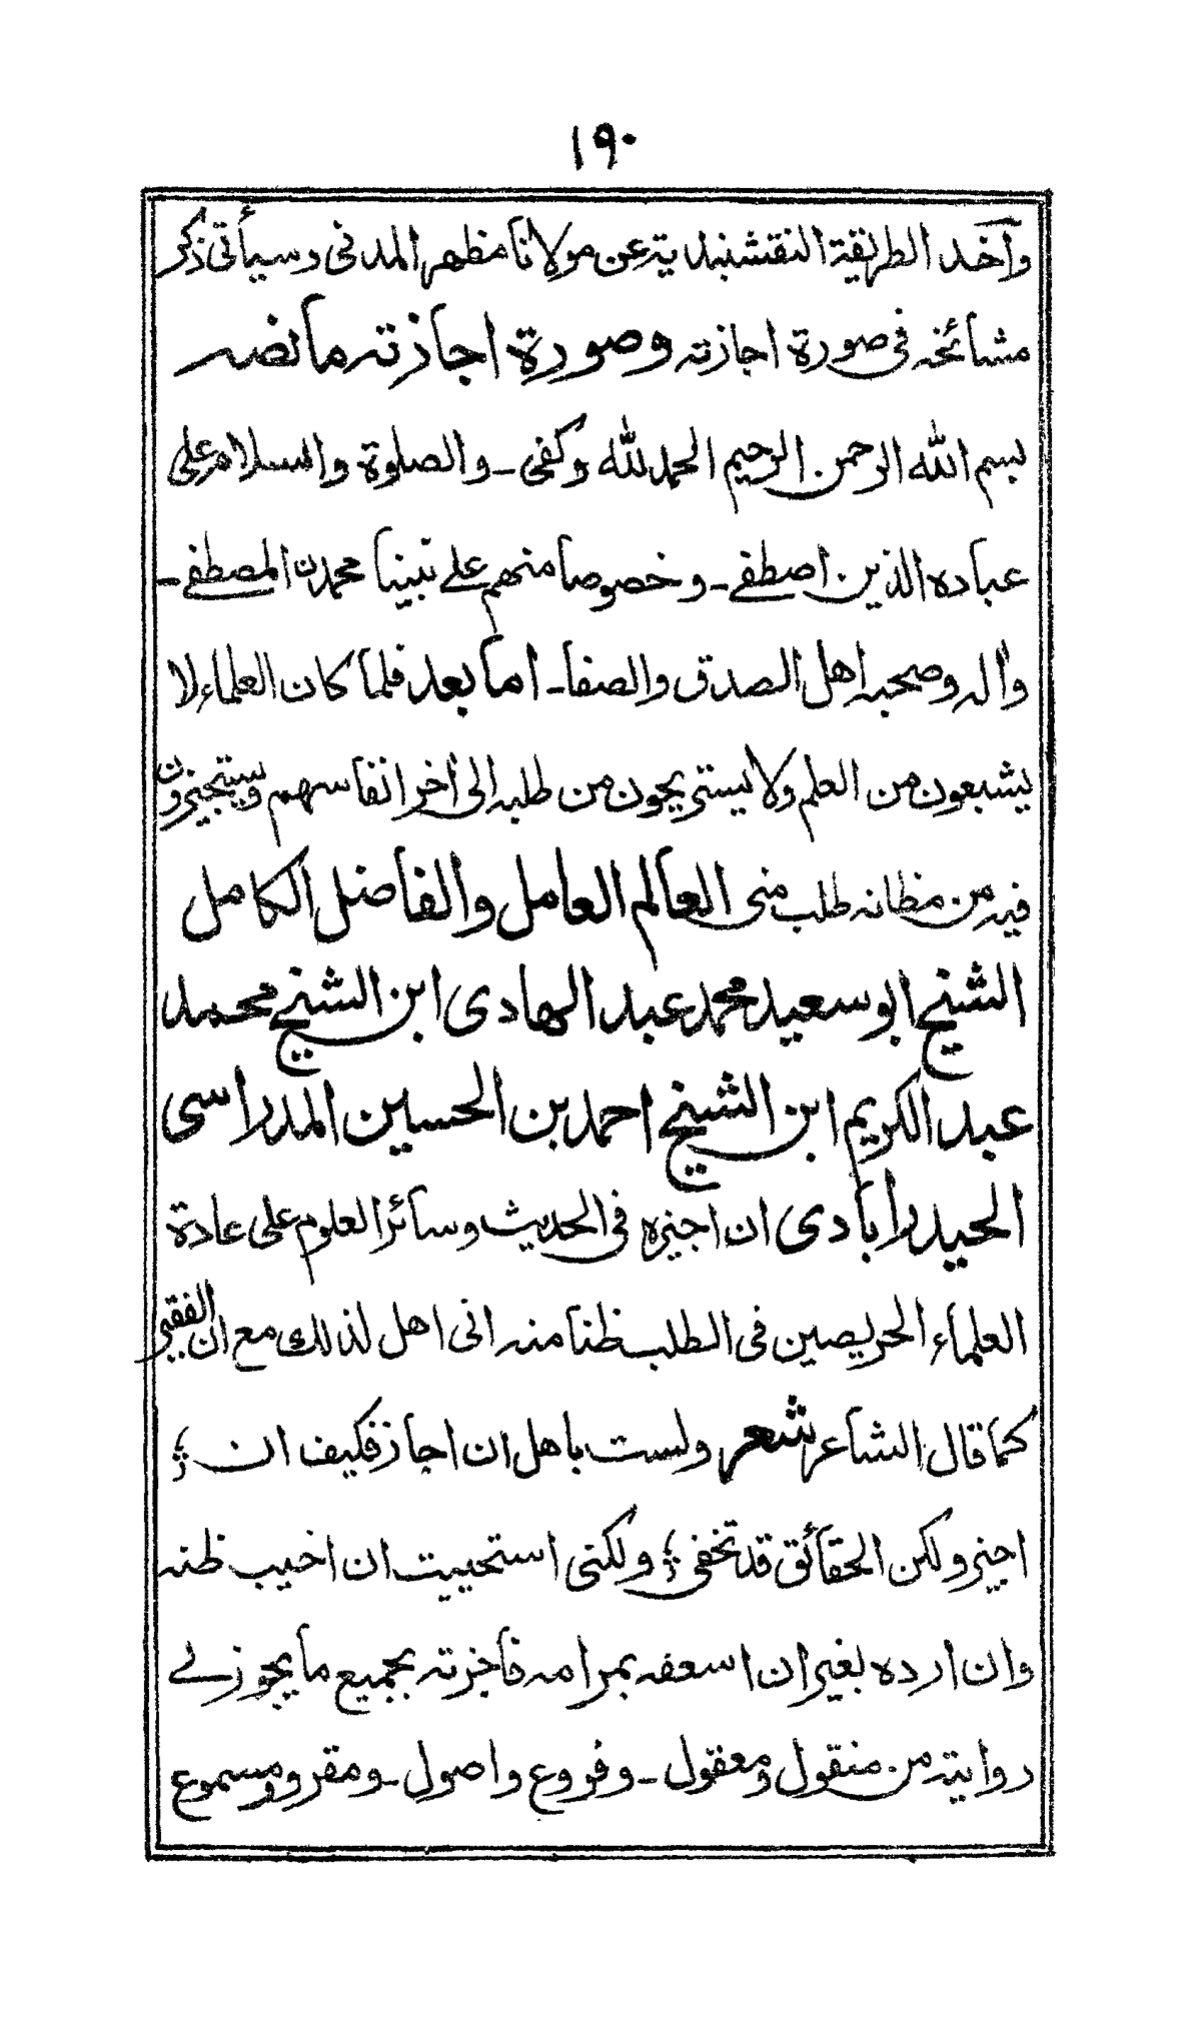 ١٩٠
وآخذ الطريقة النقشبندية عن مولانا مظهر المدنی وسيأتی ذكر
مشائخه فی صورة اجازته وصورة اجازته ما نصه
بسم الله الرحمن الرحيم الحمد لله وكفی ـ والصلوة والسلام علی
عباده الذين اصطفے ـ وخصوصا منهم علے نبينا محمدن المصطفے ـ
وآله وصحبه اهل الصدق والصفا ـ اما بعد فلما كان العلماء لا
يشبعون من العلم ولا يستريحون من طلبه الی آخر انفاسهم ويستجيزون
فيه من مظانه طلب منی العالم العامل والفاضل الكامل
الشيخ ابو سعيد محمد عبد الهادی ابن الشيخ محمد
عبد الكريم ابن الشيخ احمد بن الحسين المدراسی
الحيدرآبادی ان اجيزه فی الحديث وسائر العلوم علی عادة
العلماء الحريصين فی الطلب ظنا منه انی اهل لذلك مع ان الفقير
كما قال الشاعر شعر ولست باهل ان اجاز فكيف ان ؛
اجيز ولكن الحقائق قد تخفی ؛ ولكنی استحييت ان اخيب ظنه
وان ارده بغير ان اسعفه بمرامه فأجزته بجميع ما يجوز لے
روايته من منقول ومعقول ـ وفروع واصول ـ ومقرو ومسموع